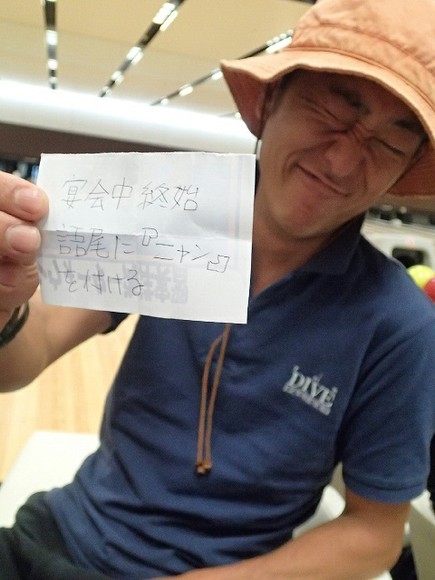 宴会中終始
語尾に『ニャン』
を付ける
DIVE